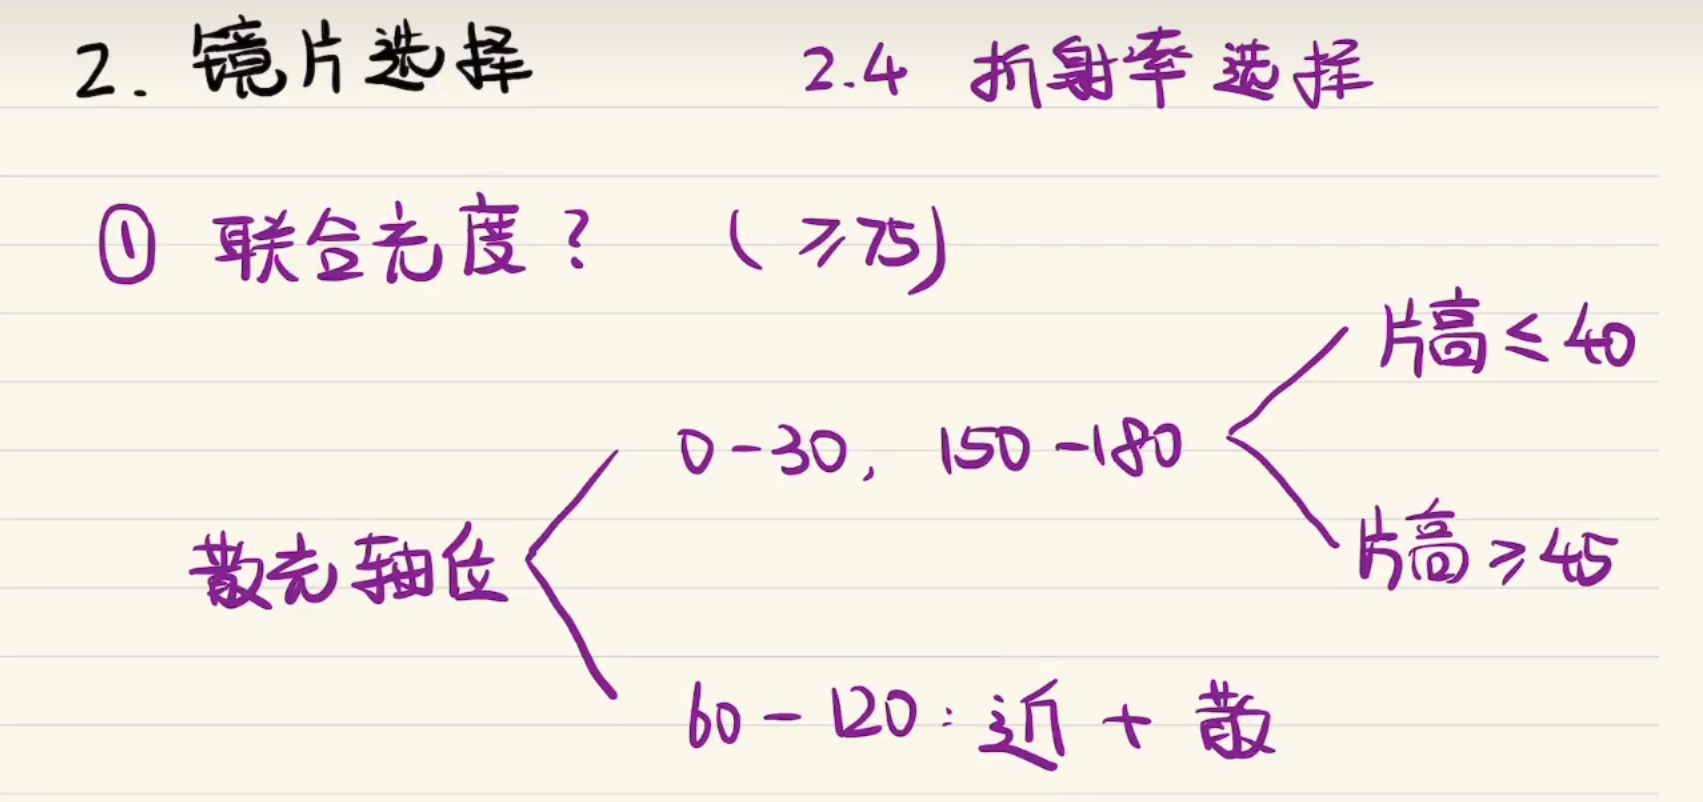 2. 镜片选择 2.4 折射率选择
① 联合光度? (≥75)
片高≤40
0-30, 150-180
片高≥45
散光轴位
60-120:近+散